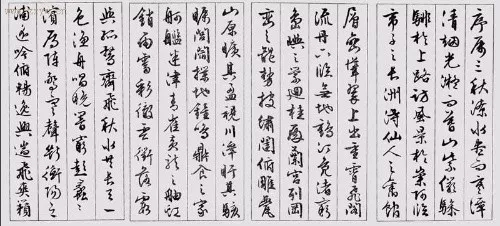 序屬三秋潦水盡而寒潭
清煙光凝而暮山紫儼驂
騑於上路訪風景於崇阿臨
帝子之長洲得仙人之舊館
層巒聳翠上出重霄飛閣
流丹下臨無地鶴汀鳧渚窮
島嶼之縈迴桂殿蘭宮列岡
巒之體勢披繡闥俯雕甍
山原曠其盈視川澤盱其駭
矚閭閻撲地鐘鳴鼎食之家
舸艦迷津青雀黃龍之舳虹
銷雨霽彩徹雲衢落霞
與孤鶩齊飛秋水共長天一
色漁舟唱晚響窮彭蠡之
濱雁陣驚寒聲斷衡陽之
浦遙吟俯暢逸興遄飛爽籟